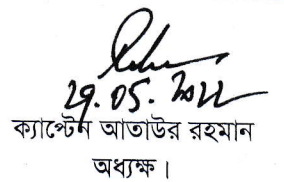 29.05.2022
ক্যাপ্টেন আতাউর রহমান
অধ্যক্ষ।